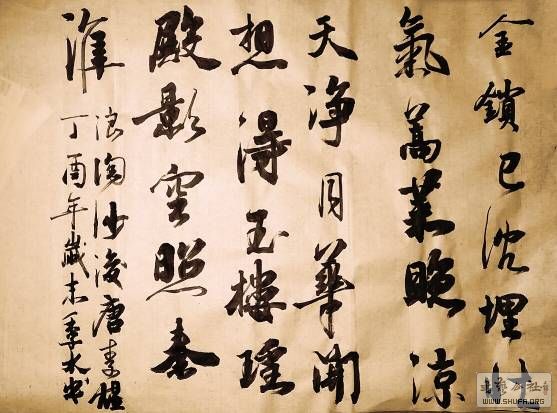 金鎖已沈埋
氣蒿萊晚涼
天净月華開
想得玉樓瑤
殿影空照秦
淮
浪淘沙後唐李煜
丁酉年歲末季水书
WWW.SHUFA.ORG